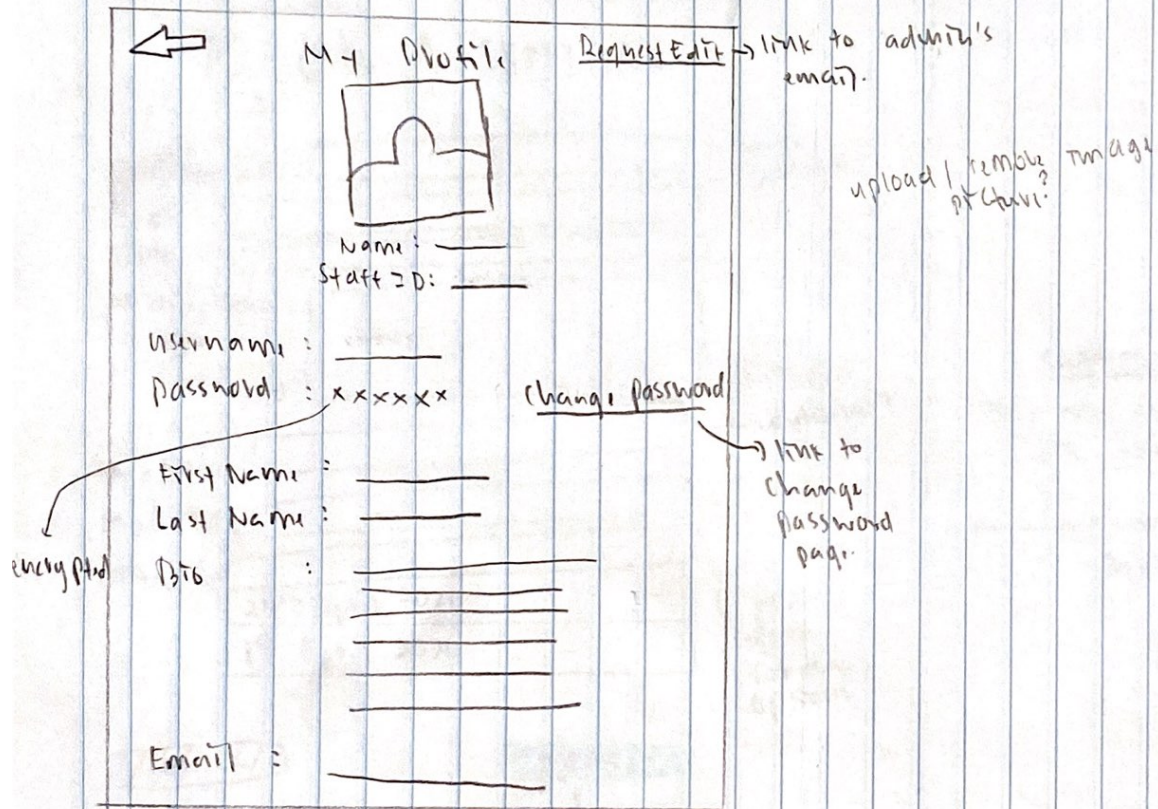 My Profile
Request Edit → link to admin's
email.
upload / remove image
picture?
Name:
Staff ID:
username :
password : xxxxxx
change password
link to
change
password
page.
encrypted
First Name :
Last Name :
Bio :
Email :